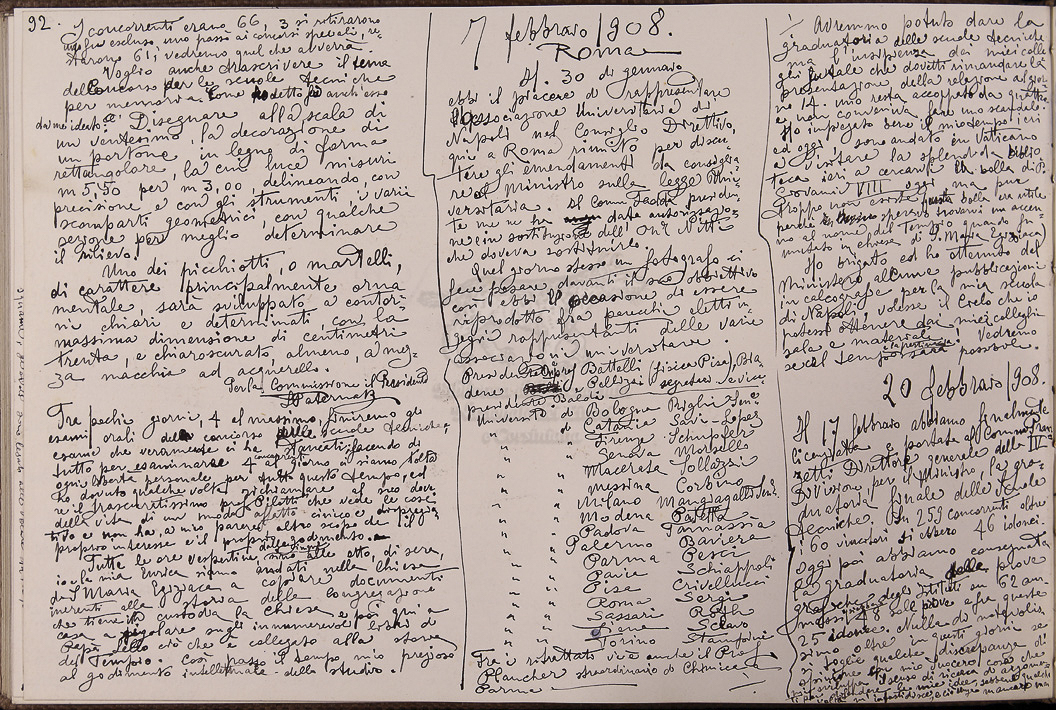 92.
I concorrenti erano 66, 3 si ritirarono
uno fu escluso, uno passò ai concorsi speciali, re=
starono 61; vedremo quel che avverrà.
Voglio anche trascrivere il tema
del Concorso per le scuole tecniche
per memoria. Come detto fu anch'esso
da me ideato: "Disegnare alla scala di
un ventesimo, la decorazione di
un portone in legno di forma
rettangolare, la cui luce misuri
m 5,50 per m 3,00, delineando, con
precisione, e con gli strumenti, i varii
scomparti geometrici, con qualche
sezione per meglio determinare
il rilievo.
Uno dei picchiotti, o martelli,
di carattere principalmente orna
mentale, sarà sviluppato a contor=
ni chiari e determinati con la
massima dimensione di centimetri
trenta, e chiaroscurato, almeno, a mez=
za macchia ad acquerello.
Per la Commissione il Presidente
Paternas
Fra pochi giorni, 4 al massimo, finiremo gli
esami orali del concorso delle scuole tecniche,
esame che veramente ci ha stancati, facendo di
tutto per esaminarne 4 al giorno ci siamo tolta
ogni libertà personale per tutto questo tempo, ed
ho dovuto qualche volta richiamare al suo dove
re il trascuratissimo prof Pilotti che vede le cose
della vita di un modo affatto cinico e disprezza
tivo e non ha, a mio parere, altro scopo che il
proprio interesse e il proprio godimento.
Tutte le ore vespertine, fino alle otto, di sera,
io e la mia Enrica siamo andati nella chiesa
di S. Maria Egiziaca a copiare documenti
inerenti alla storia della congregazione
che tiene in custodia la Chiesa, e poi qui a
casa a spigolare sugli innumerevoli libri di
Pepe ciò che è collegato alla storia
del Tempio. Così passo il tempo mio prezioso
al godimento intellettuale dello studio.
7 febbraio 1908.
Roma
Il 30 di gennaio
ebbi il piacere di rappresentare
l'Associazione Universitaria di
Napoli nel Consiglio Direttivo,
qui a Roma riunito per discu
tere gli emendamenti da consiglia
re al ministro sulla legge Uni=
versitaria. Il Comm Fadda presiden
te me ne data autorizzazio=
ne in sostituzione dell' On.e Nitti
che doveva sostituirlo.
Quel giorno stesso un fotografo ci
fece posare davanti il suo obbiettivo
così ebbi l'occasione di essere
riprodotto fra parecchi eletti in=
gegni rappresentanti delle varie
associazioni universitarie.
Presidente Prof Battelli (fisica Pisa), Bla
dene e Pellizzi segretari, e vice
presidente Baldi
Università di Bologna Righi Sen.
" di Catania Savi-Lopez
" " Firenze Schupfer
" " Genova Morsello
" " Macerata Sollazzi
" " Messina Corbino
" " Milano Mangiagalli Sen.
" " Modena Patella
" " Padova Tamassia
" " Palermo Baviera
" " Parma Pesci
" " Pavia Schiappoli
" " Pisa Crivellucci
" " Roma Sergi
" " Sassari Roth
" " Siena Sclavo
" " Torino Stampini
Fra i ritrattati vi è anche il Prof
Plancher straordinario di Chimica a
Parma
Avremmo potuto dare la
graduatoria delle scuole tecniche
ma l'insipienza dei miei colle
ghi fu tale che dovetti rimandare la
presentazione della relazione al gior
no 14. uno resta accoppato da quattro
e non conveniva fare uno scandalo.
Ho impiegato bene il mio tempo ieri
ed oggi, sono andato in Vaticano
a visitare la splendida biblio
teca ieri a cercare la bolla di P.
Giovanni VIII, oggi ma pur
troppo non esiste questa bolla era utile
perché speravo trovarvi un accen
no al nome del Tempio pagano tra=
mutato in chiesa di S. Maria Egiziaca
Ho brigato ed ho ottenuto dal
Ministero alcune pubblicazioni
in calcografia per la mia scuola
di Napoli, volesse il Cielo che io
potessi ottenere dai miei colleghi
sala e materiale. Vedremo
se col tempo sarà possibile.
20 febbraio 1908.
Il 17 febbraio abbiamo finalmente
licenziata e portata al Comm Fran
zetti Direttore generale della III
Divisione per il Ministro, la gra=
duatoria finale delle scuole
tecniche. Su 255 concorrenti oltre
i 60 vincitori si ebbero 46 idonei.
Oggi poi abbiamo consegnata
la graduatoria delle prove
grafiche degli Istituti su 62 am=
messi, 48 sulle prove e fra queste
25 idonee. Nulla di notevolis
simo oltre in questi giorni se
si toglie qualche discrepanza di
opinione